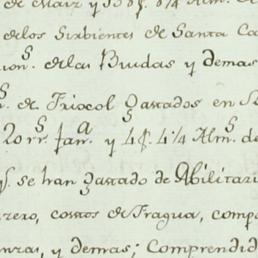 de Maiz y
de los Sirbientes de Santa Ca
de las Biudas y demas
de Friocol Gastados en S
20 rrˢ y 4 4¼ Almˢ de
se han Gastado de Abilitari
rrero, costos de Fragua, comp
y demas; Comprendid